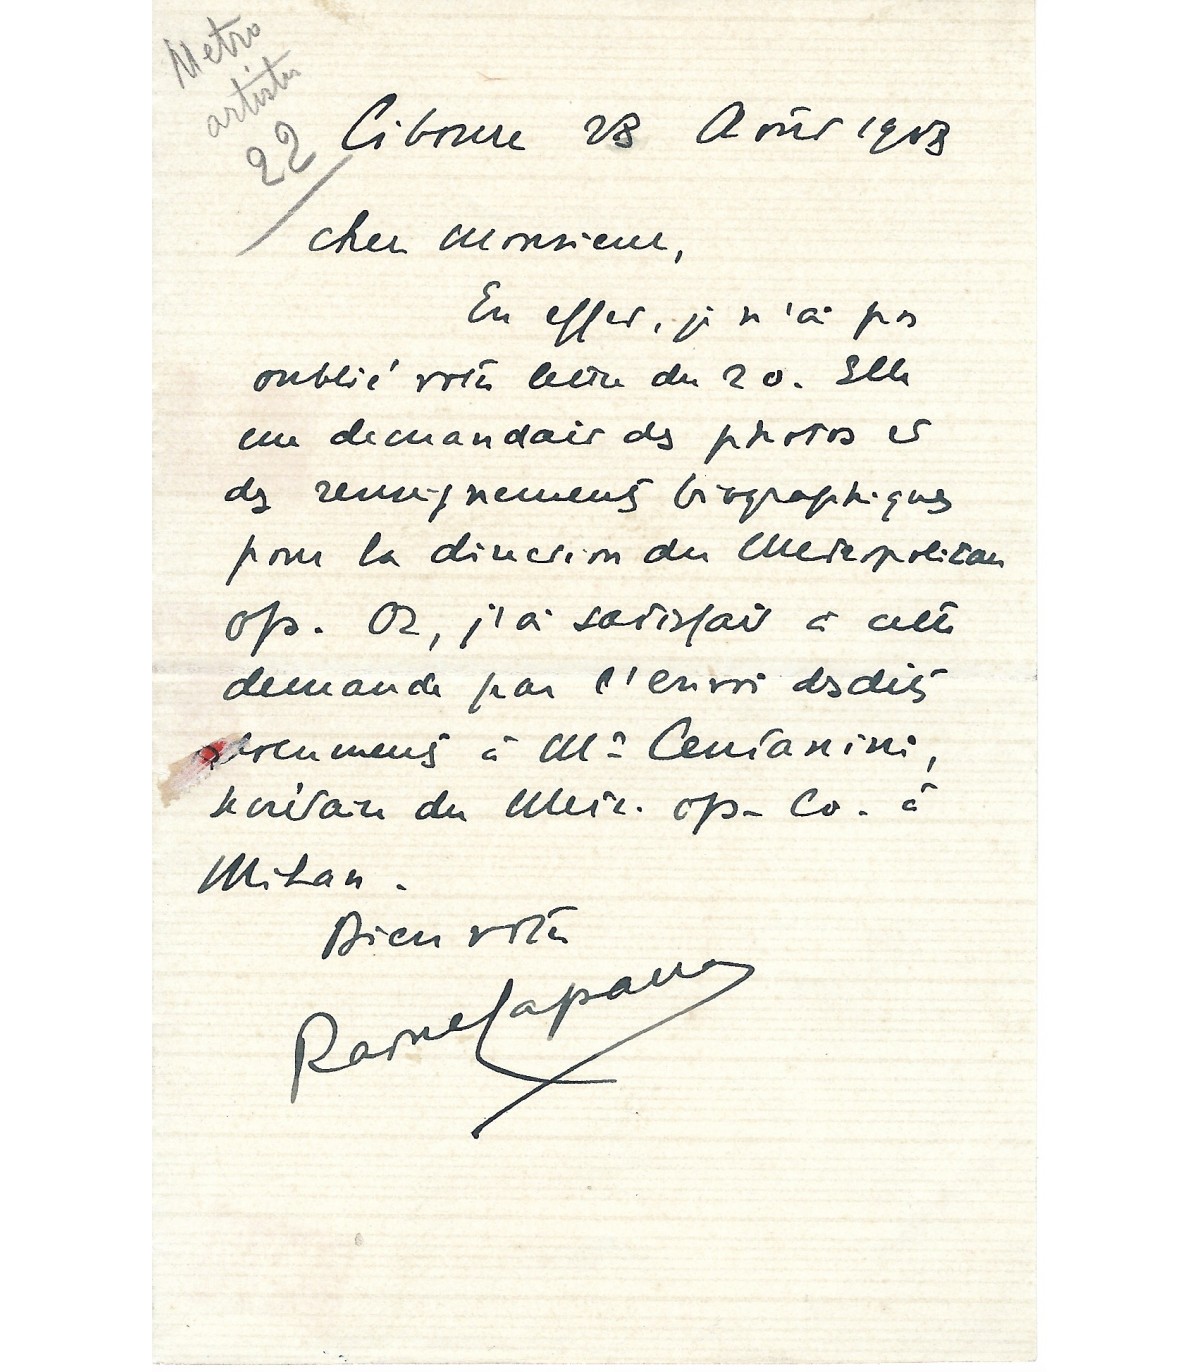 Metro
artistes
22
Ciboure 28 Août 1913
Cher Monsieur,
En effet, je n'ai pas
oublié votre lettre du 20. Elle
me demandait des photos et
des renseignements biographiques
pour la direction du Metropolitan
op. Or, j'ai satisfait à cette
demande par l'envoi desdits
documents à Mr Centanini,
du Metr. op. Co. à
Milan.
Bien votre
Raoul Laparra